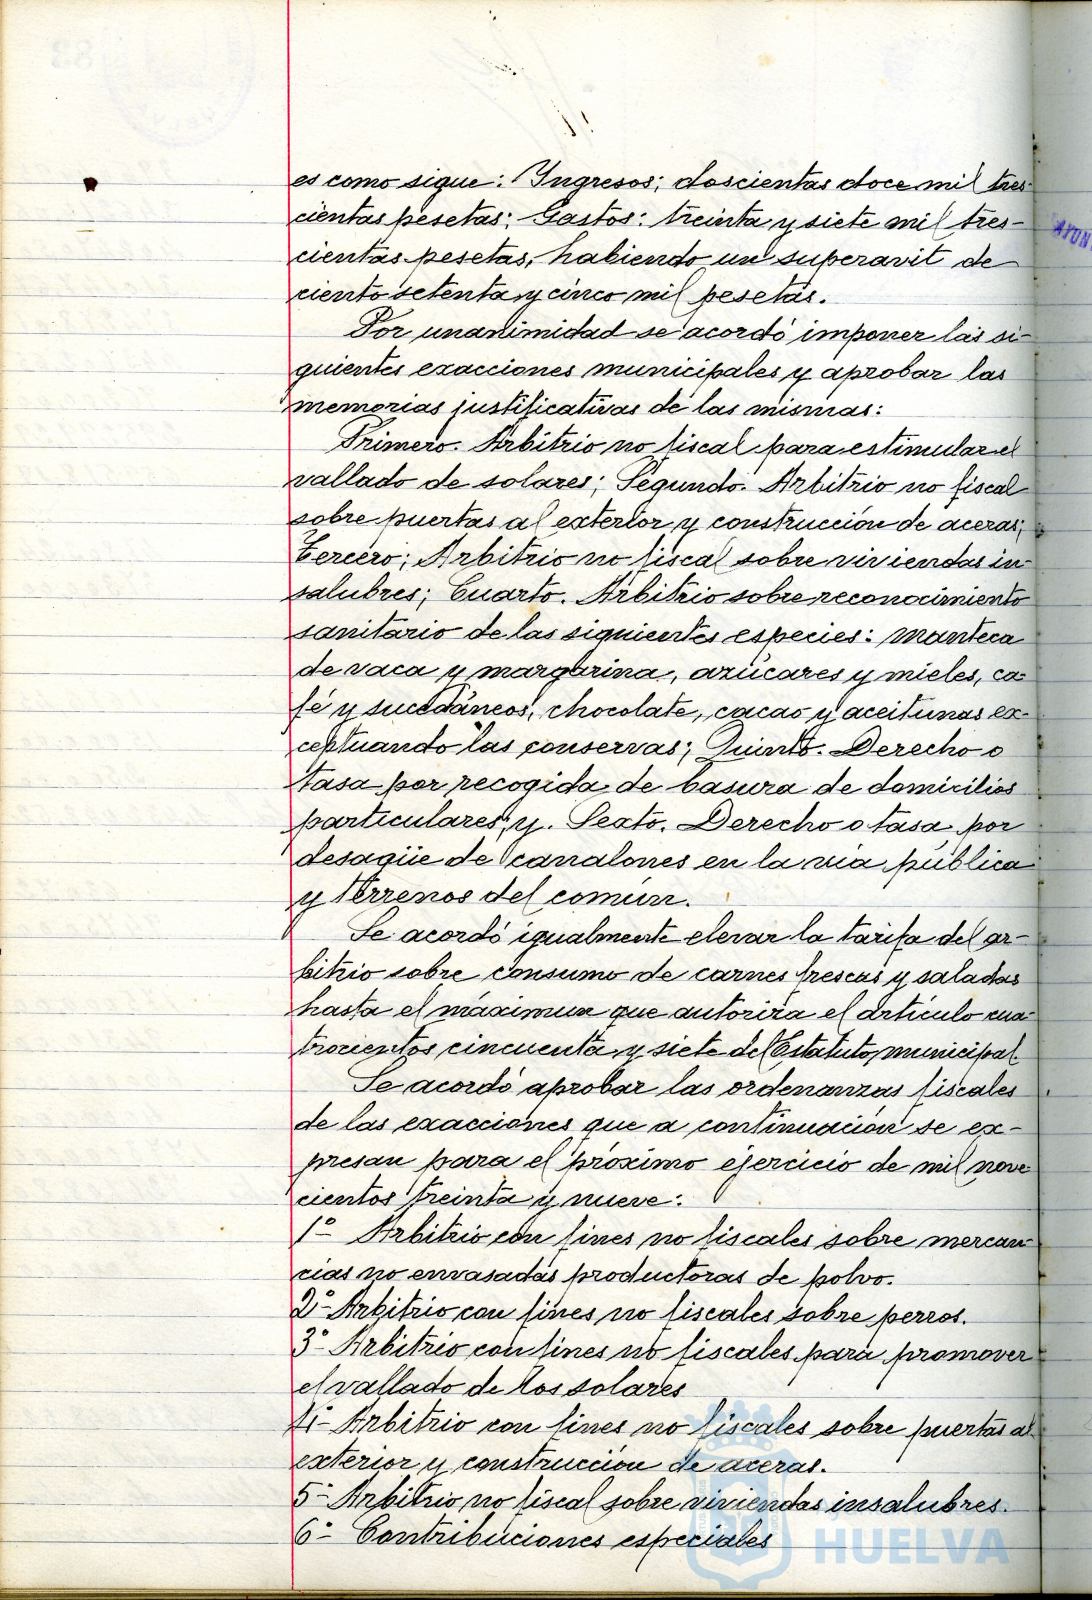 es como sigue: Ingresos; doscientas doce mil tres-
cientas pesetas; Gastos: treinta y siete mil tres-
cientas pesetas, habiendo un superavit de
ciento setenta y cinco mil pesetas.
Por unanimidad se acordó imponer las si-
guientes exacciones municipales y aprobar las
memorias justificativas de las mismas:
Primero. Arbitrio no fiscal para estimular el
vallado de solares; Segundo. Arbitrio no fiscal
sobre puertas al exterior y construcción de aceras;
Tercero; Arbitrio no fiscal sobre viviendas in-
salubres; Cuarto. Arbitrio sobre reconocimiento
sanitario de las siguientes especies: manteca
de vaca y margarina, azúcares y mieles, ca-
fé y sucedáneos, chocolate, cacao y aceitunas ex-
ceptuando las conservas; Quinto. Derecho o
tasa por recogida de basura de domicilios
particulares, y. Sexto. Derecho o tasa por
desagüe de canalones en la via pública
y terrenos del común.
Se acordó igualmente elevar la tarifa del ar-
bitrio sobre consumo de carnes frescas y saladas
hasta el máximun que autoriza el artículo cua-
trocientos cincuenta y siete del Estatuto municipal.
Se acordó aprobar las ordenanzas fiscales
de las exacciones que a continuación se ex-
presan para el próximo ejercicio de mil nove
cientos treinta y nueve:
1º- Arbitrio con fines no fiscales sobre mercan-
cias no envasadas productoras de polvo.
2º- Arbitrio con fines no fiscales sobre perros.
3º- Arbitrio con fines no fiscales para promover
el vallado de los solares
4º- Arbitrio con fines no fiscales sobre puertas al
exterior y construcción de aceras.
5º- Arbitrio no fiscal sobre viviendas insalubres.
6º- Contribuciones especiales
HUELVA